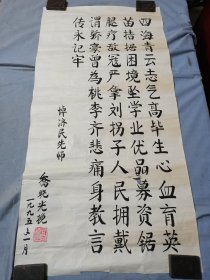 四海青云志气高毕生心血育英
苗拮据困境坠学业优品募资锯
腿疗敌冠严拿刘拐子人民拥戴
渭骄豪曾为桃李齐悲痛身教言
传永记牢
悼海民先师
乔晓光挽
一九九五年十一月